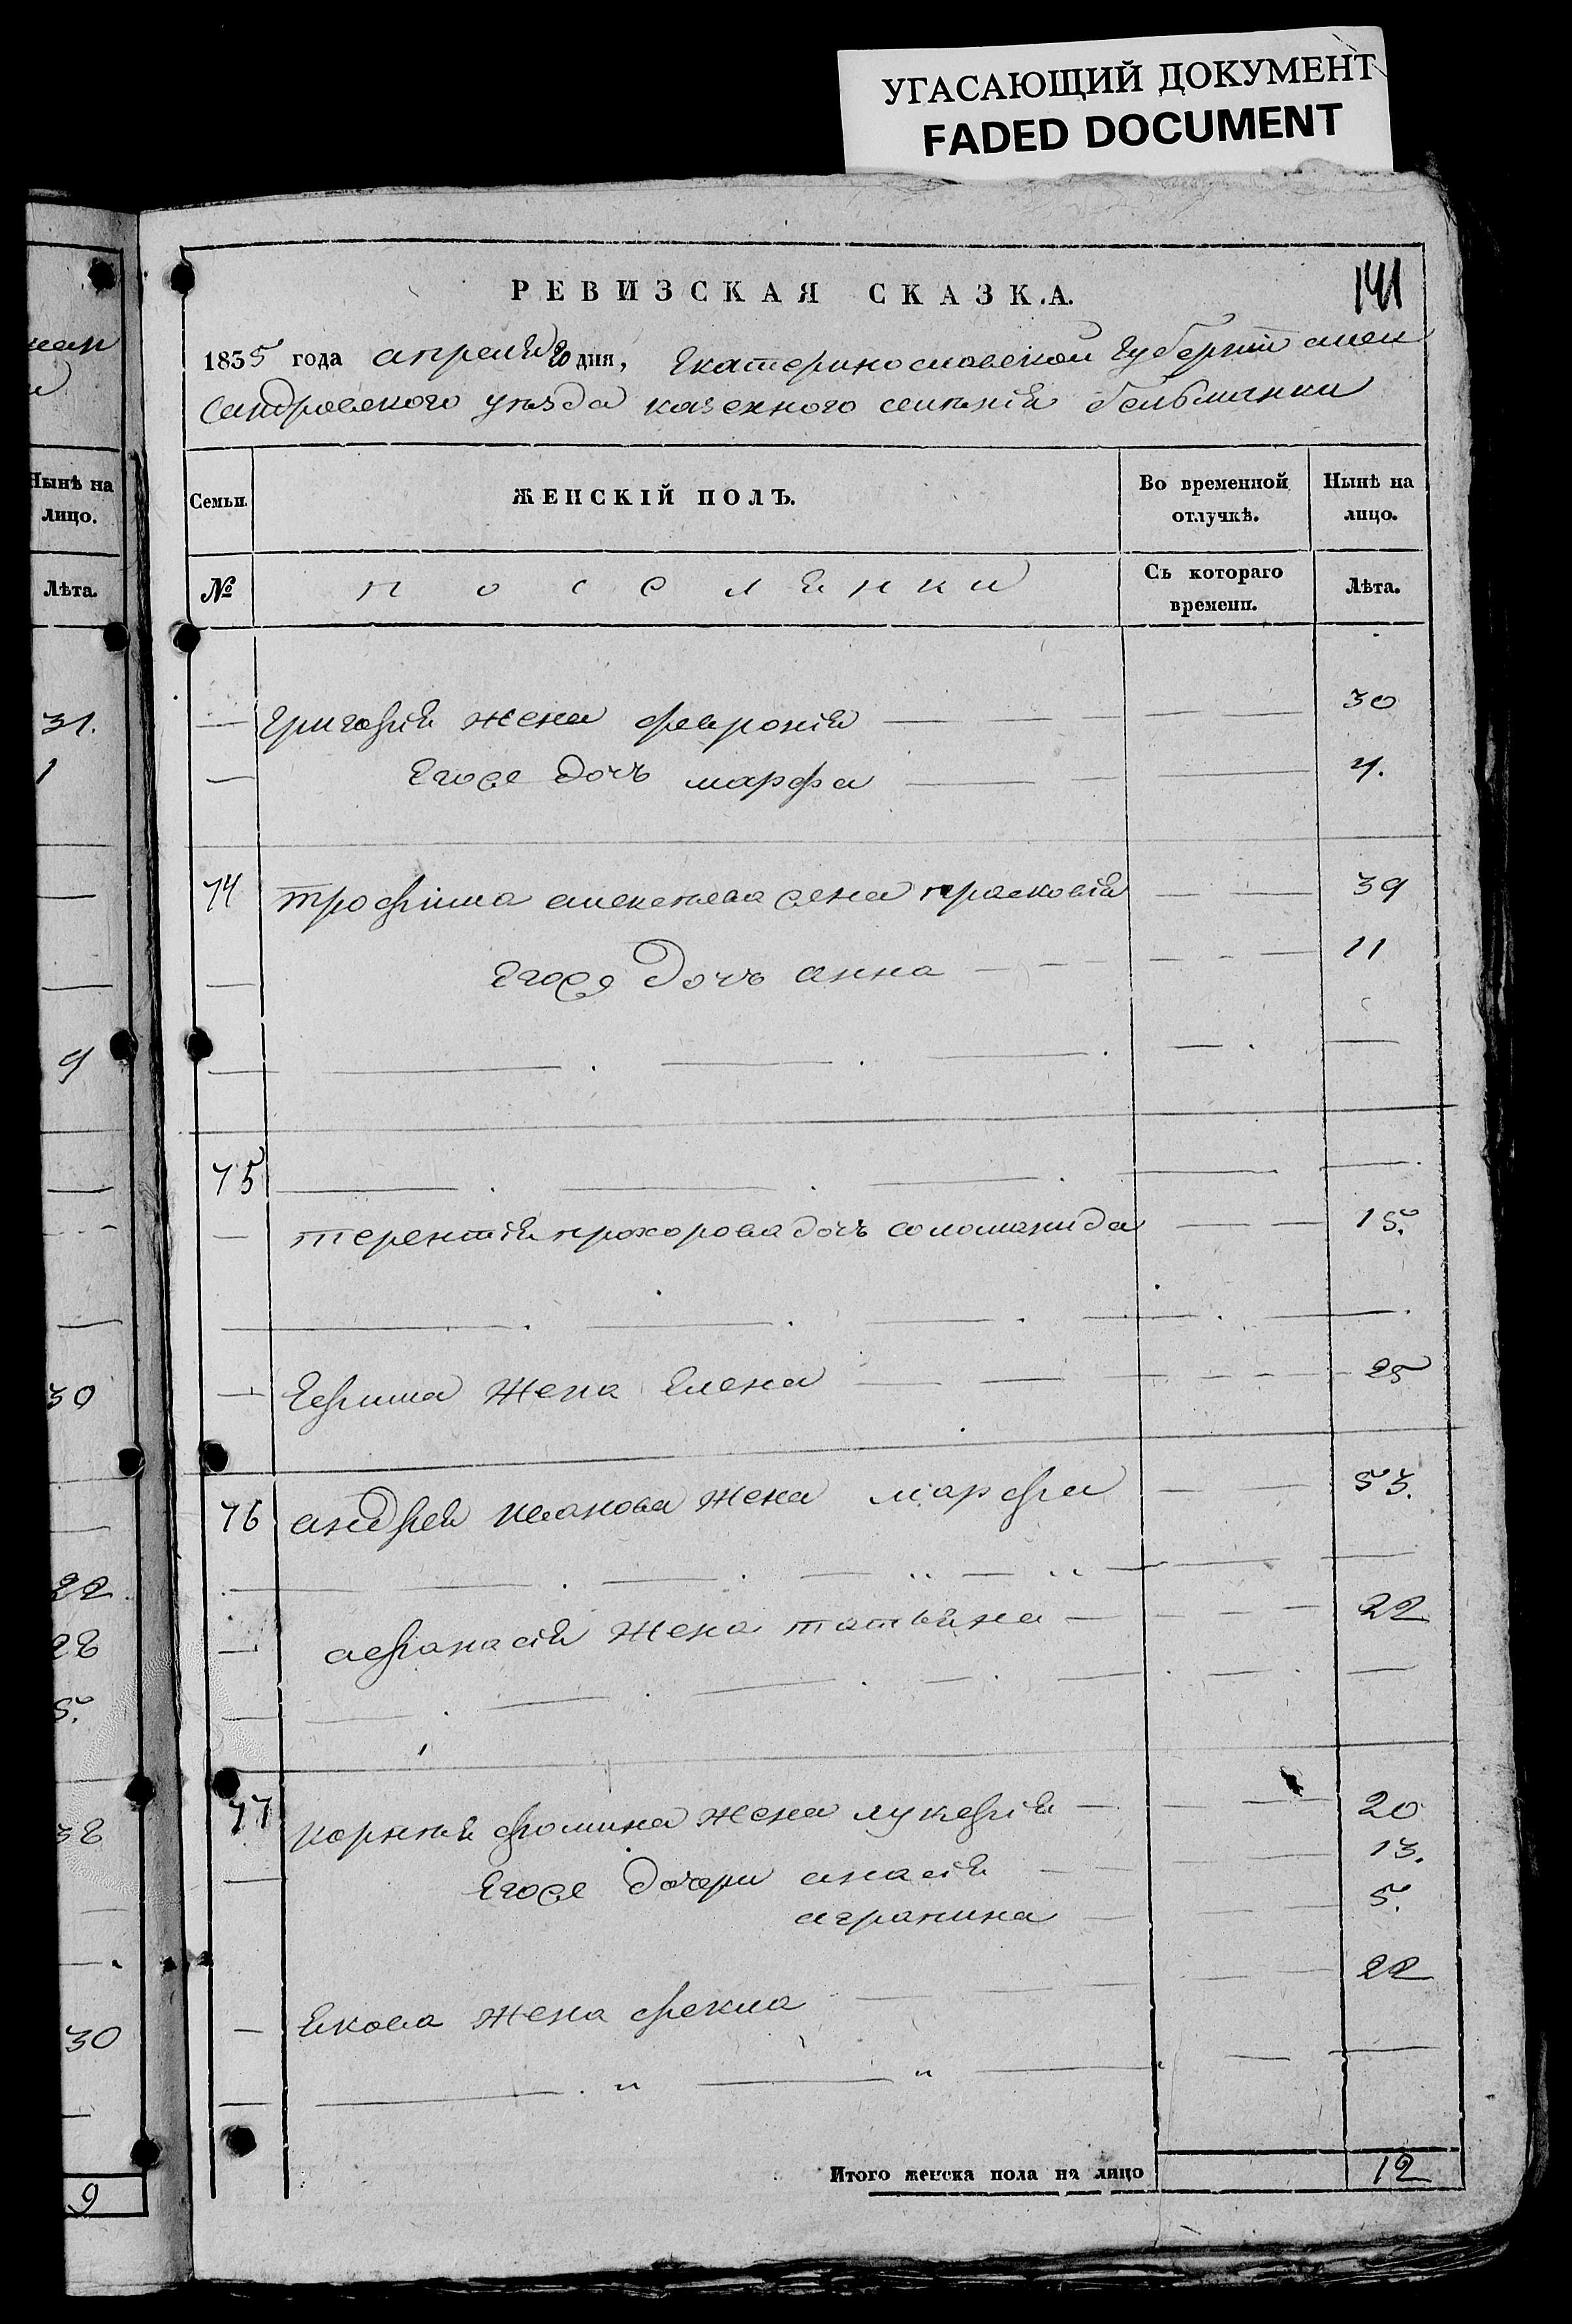 УГАСАЮЩИЙ ДОКУМЕНТ
FADED DOCUMENT
РЕВИЗСКАЯ СКАЗКА.
141
1835 года апреля 20 дня, Екатеринославской губернии алек
сандровского уезда казенного селения белманки
Нынѣ на лицо.
Лѣта.
Семьи.
ЖЕНСКІЙ ПОЛЪ.
Во временной отлучкѣ.
Нынѣ на лицо.
№
поселянки
Съ котораго времени.
Лѣта.
31.
1
9
30
22.
28
5.
38
30
9
— Григория жена феврония — 30
— Егоже дочь марфа — 4.
74 трофима алексеева жена прасковия — 39
— Егоже дочь анна — 11
75
— терентия прохорова дочь соломанида — 15.
— Ефима жена Елена — 25
76 андрея иванова жена марфа — 53.
— афанасия жена татьяна — 22
77 корнея фомина жена лукерия — 20
— Егоже дочери анасия — 13.
аграпина — 5.
— Якова жена фекла — 22
Итого женска пола на лицо 12